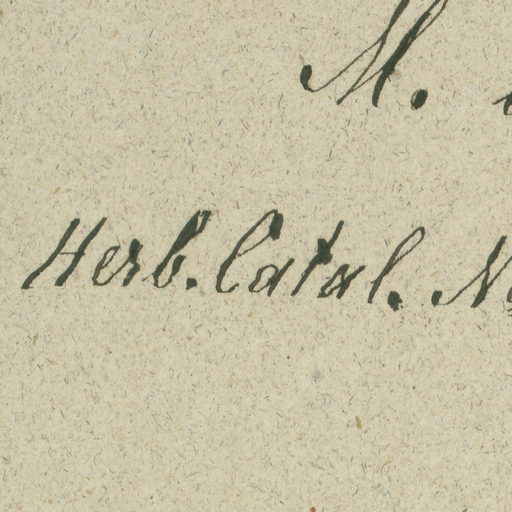 M.
Herb. Catal. N